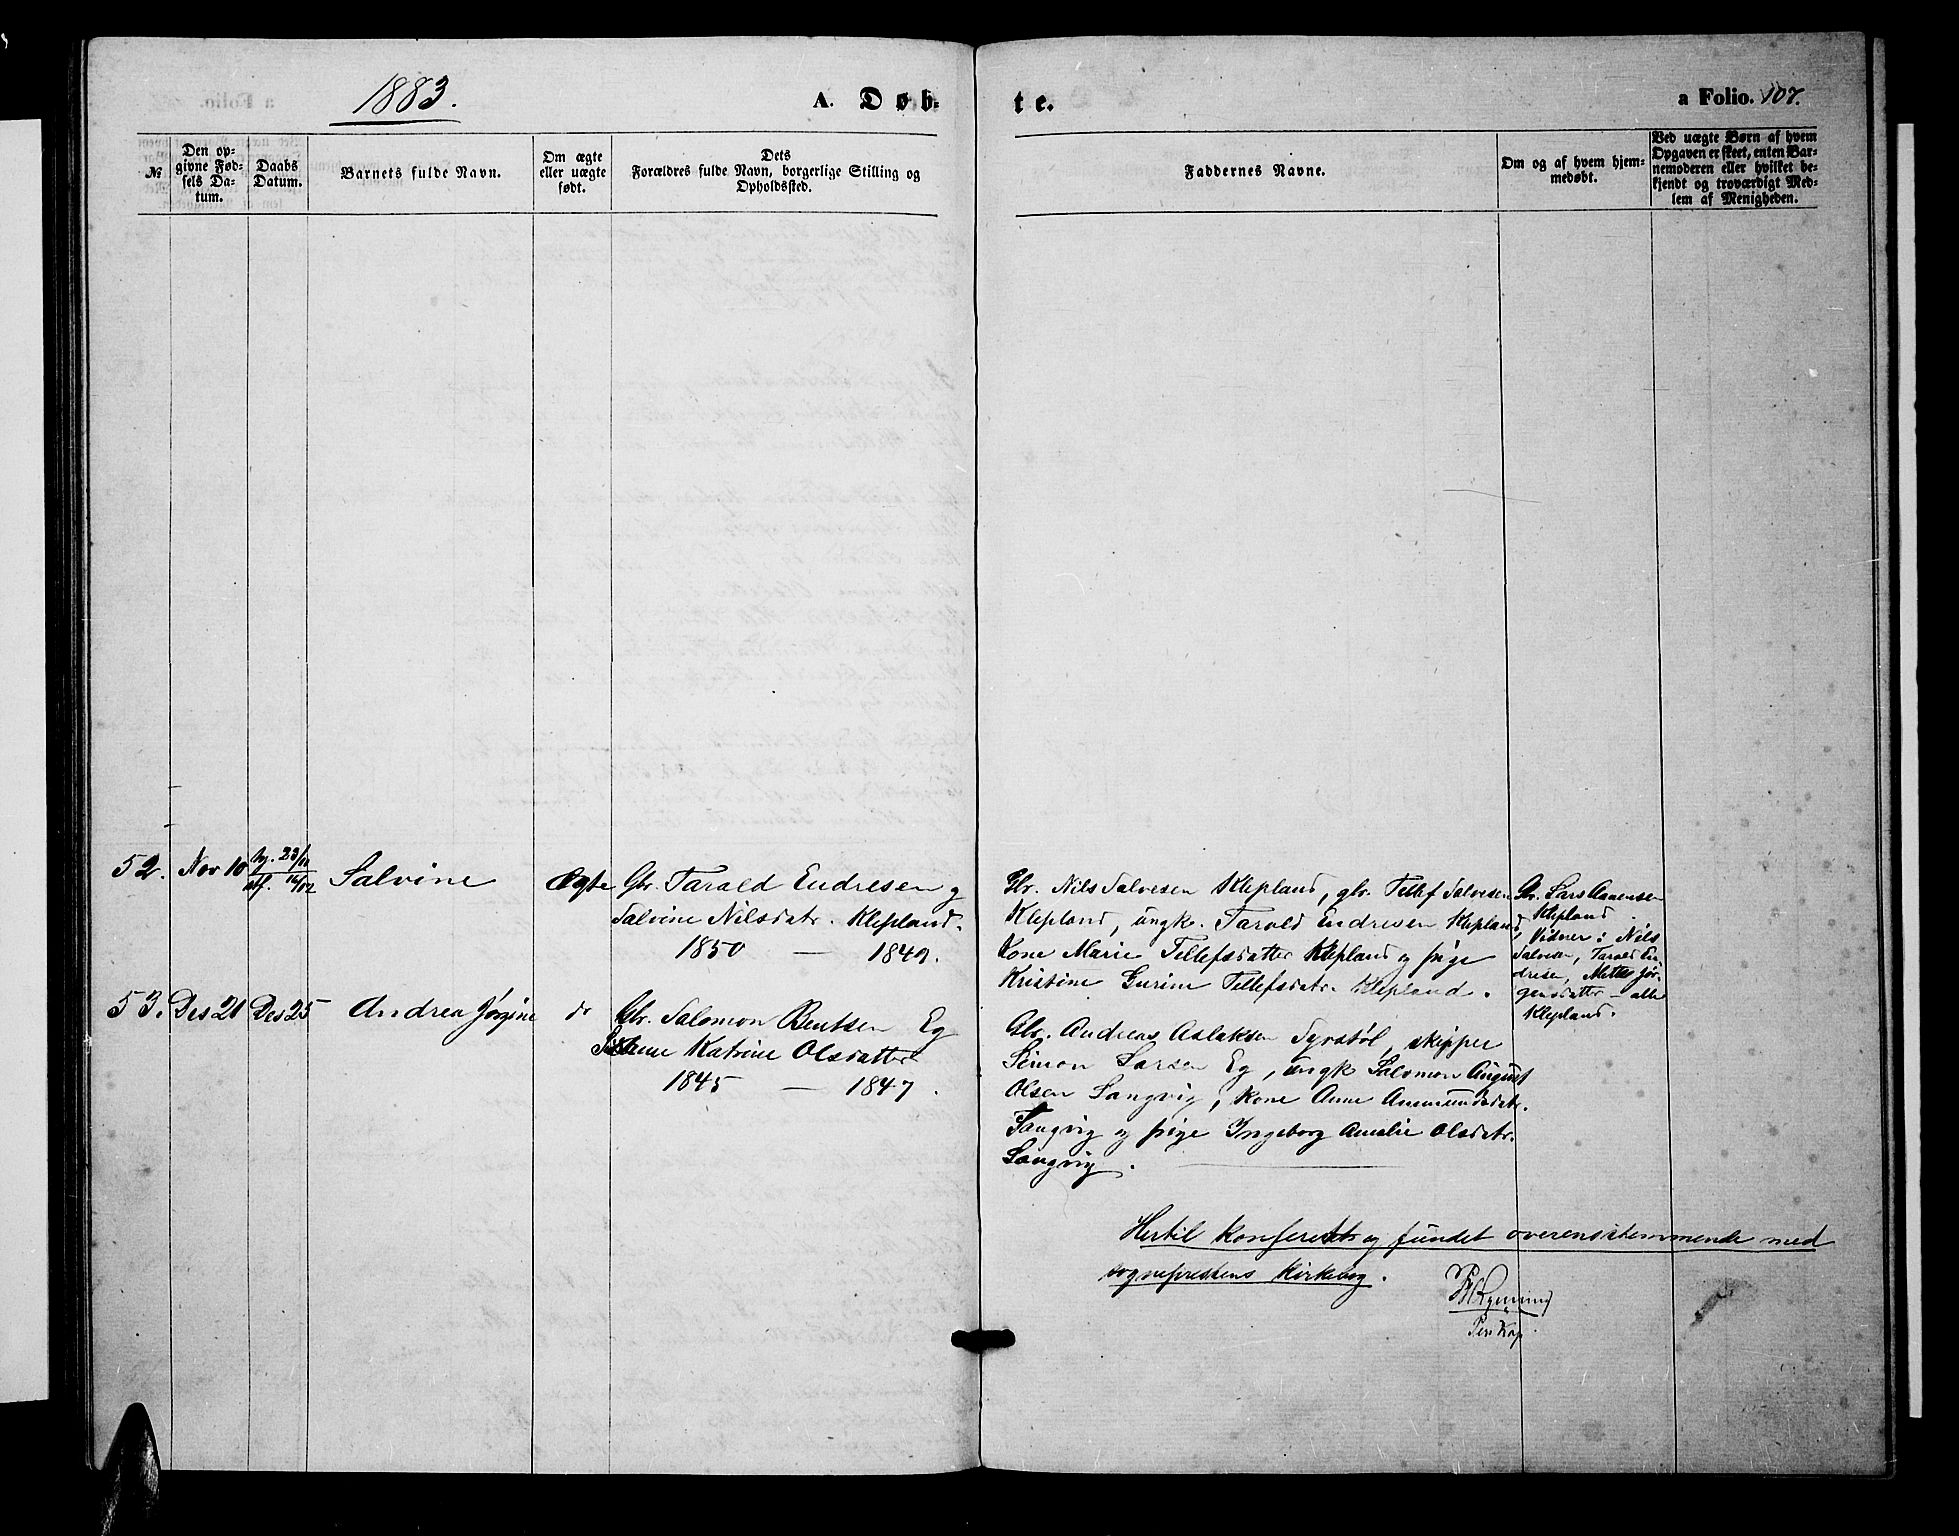 1883.
A. Døb-
te.
a Folio. 107.
№
Den op-
givne Fød-
sels Da-
tum.
Daabs
Datum.
Barnets fulde Navn.
Om ægte
eller uægte
født.
Dets
Forældres fulde Navn, borgerlige Stilling og
Opholdssted.
Faddernes Navne.
Om og af hvem hjem-
medøbt.
Ved uægte Børn af hvem
Opgaven er skeet, enten Bar-
nemoderen eller hvilket be-
kjendt og troværdigt Med-
lem af Menigheden.
52. Nov 10 hj. 23/11 Salvine Ægte Gbr. Tarald Endresen og
stf. 16/12
Salvine Nilsdatr. Klepland.
1850 — 1849.
Gbr. Nils Salvesen Klepland, gbr. Tellef Salvesen
Klepland, ungk. Tarald Endresen Klepland,
Kone Marie Tellefsdatter Klepland og pige
Kristine Gurine Tellefsdatr. Klepland.
Gbr. Lars Aanensen
Klepland.
Vidner: Nils
Salvesen, Tarald En-
dresen, Mette Jør-
gensdatter – alle
Klepland.
53. Des 21 Des 25 Andrea Jørgine do Gbr. Salomon Bentsen Eg
Katrine Olsdatter
1845 — 1847.
Gbr. Andreas Aslaksen Syrstøl, skipper
Simon Larsen Eg, ungk Salomon August
Olsen Langvig, kone Anne Ammundsdatr.
Tangvig og pige Ingeborg Amalie Olsdatr.
Langvig.
Hertil konfereret og fundet overensstemmende med
sogneprestens kirkebog.
Pers Kap.